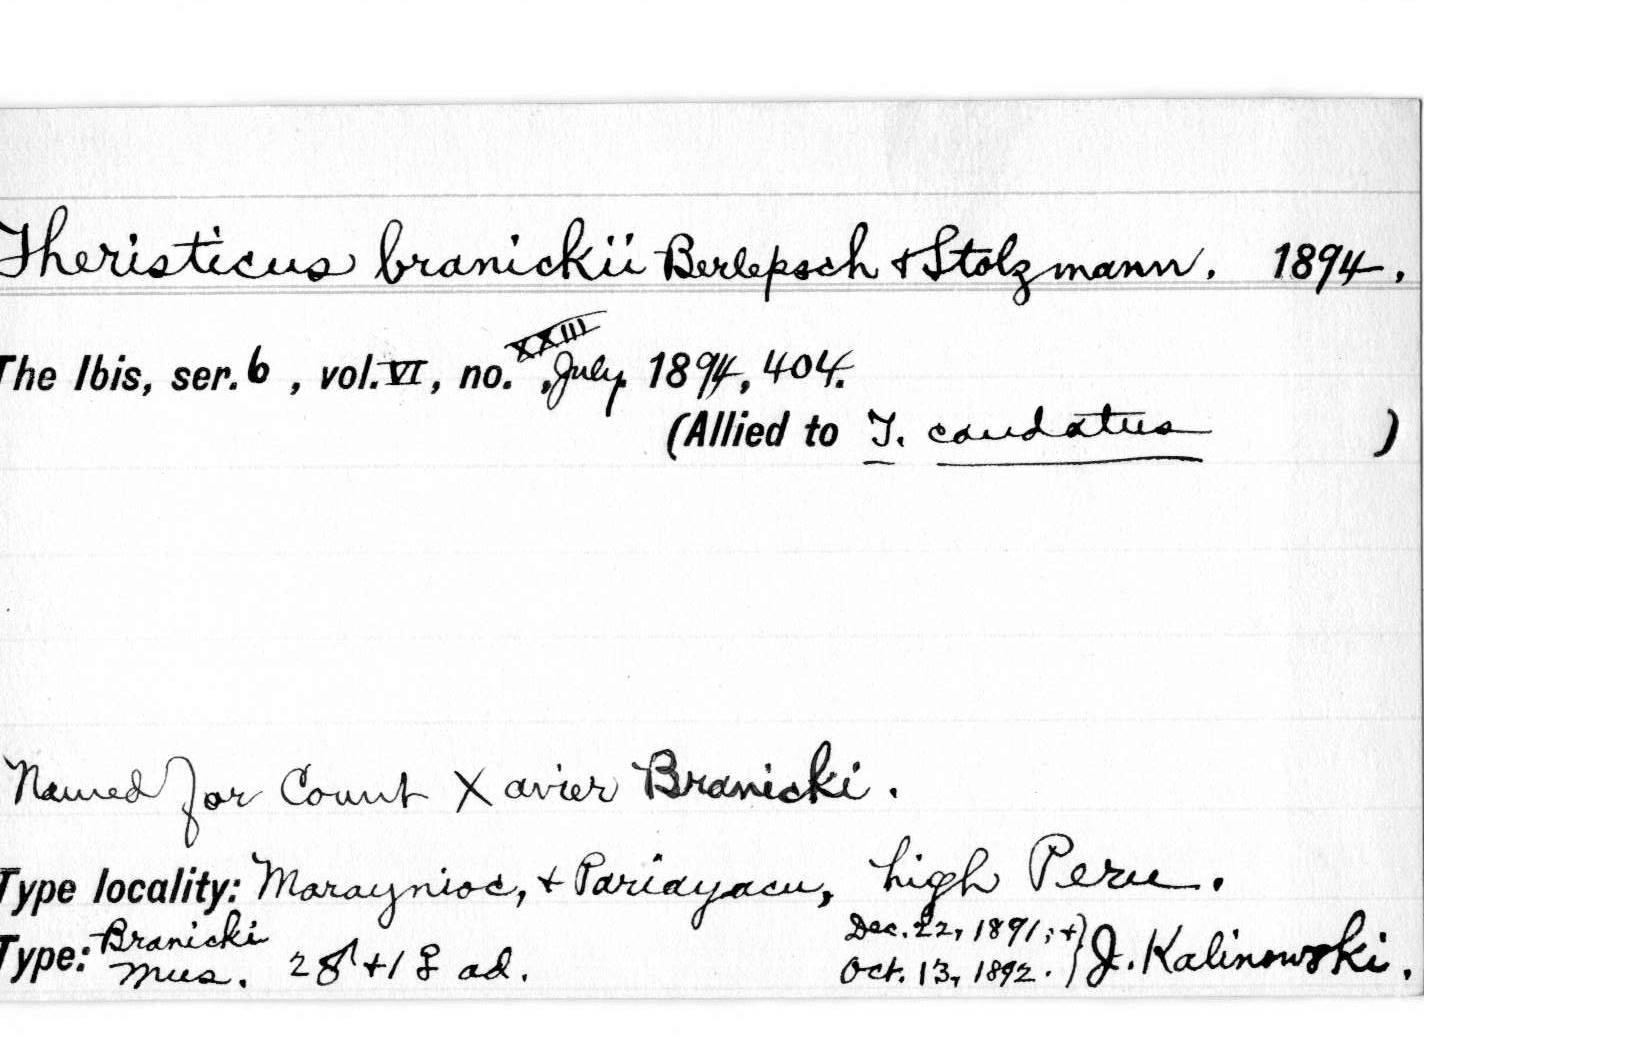 Theristicus branickii Berlepsch & Stolzmann. 1894.
The Ibis, ser. 6, vol. VI, no. XXIII, July 1894, 404.
(Allied to T. caudatus )
Named for Count Xavier Branicki.
Type locality: Maraynioc, & Pariayacu, high Peru.
Type: Branicki Mus. 2♂+1♀ ad. Dec. 22, 1891; & Oct. 13, 1892. } J. Kalinowski.